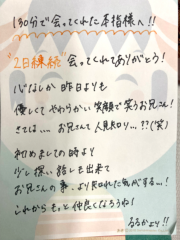 130分で会ってくれた本指様へ!!
"2日連続"会ってくれてありがとう!
いじなしか昨日よりも
優しくてやわらかい笑顔で笑うお兄さん!
さては…お兄さんて人見知り…??(笑)
初めましての時より
少し深い話しも出来て
お兄さんの事、より知れた気がする…!
これからもっと仲良くなろうね!
るるかより!!